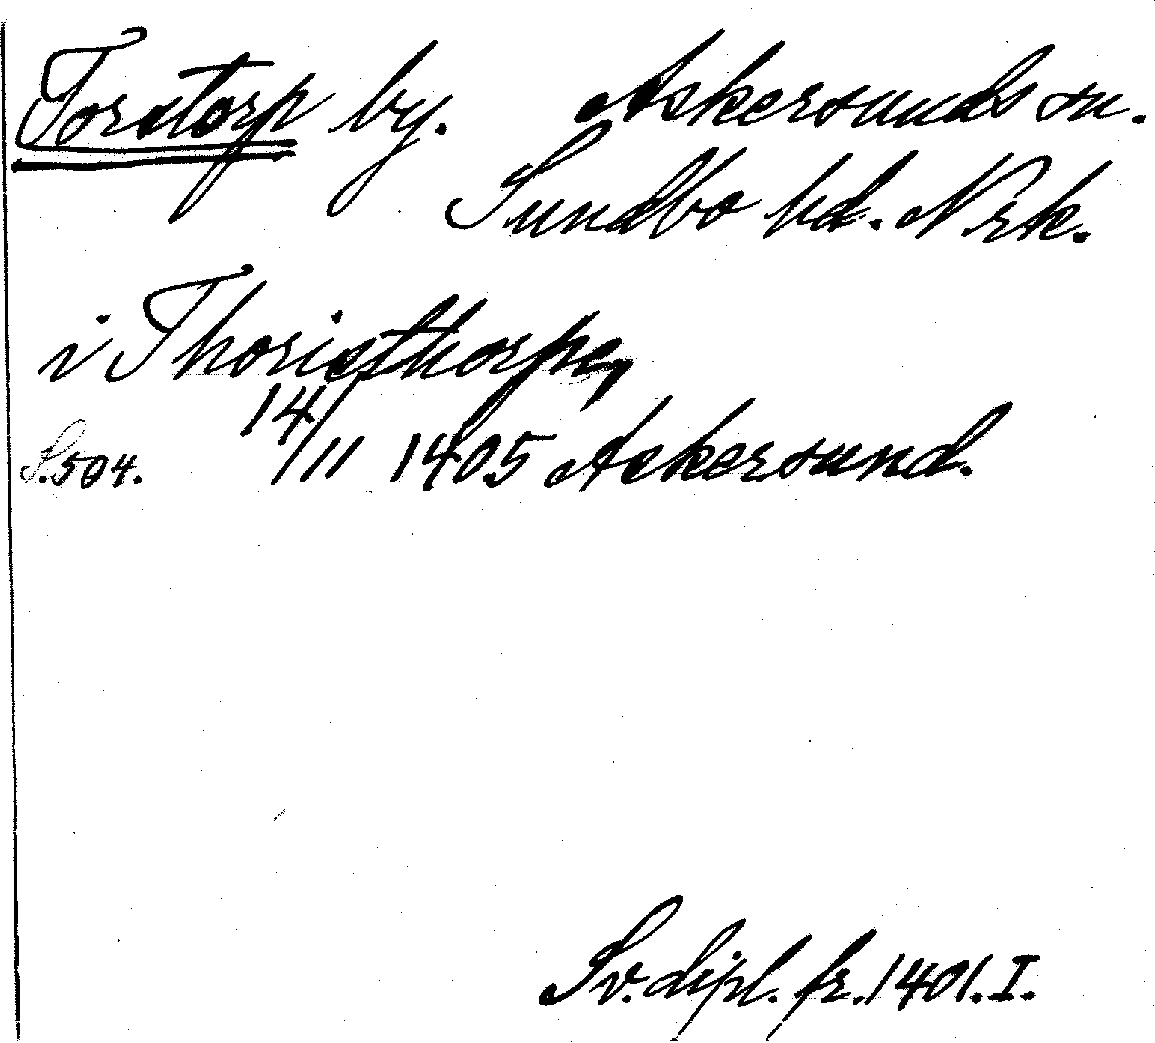 Torstorp by. Askersunds sn.
Sundbo hd. Nrk.
i Thoristhorpe,
S. 504. 14/11 1405 Askersund.
Sv. dipl. fr. 1401. I.